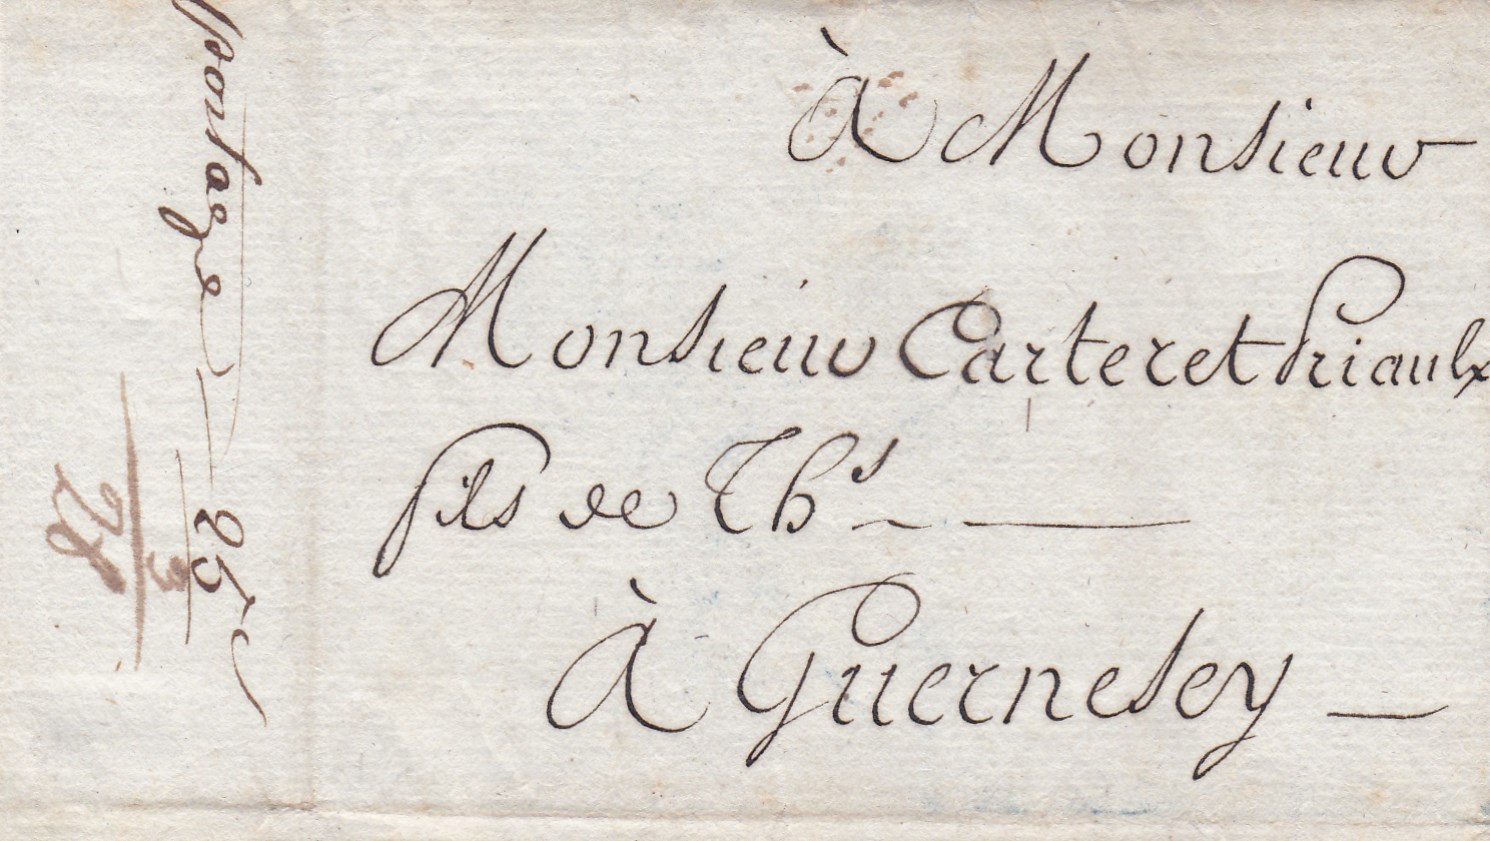 à Monsieur
Monsieur Carteret Priaulx
fils de Ths
à Guernesey
portage 25
3
28